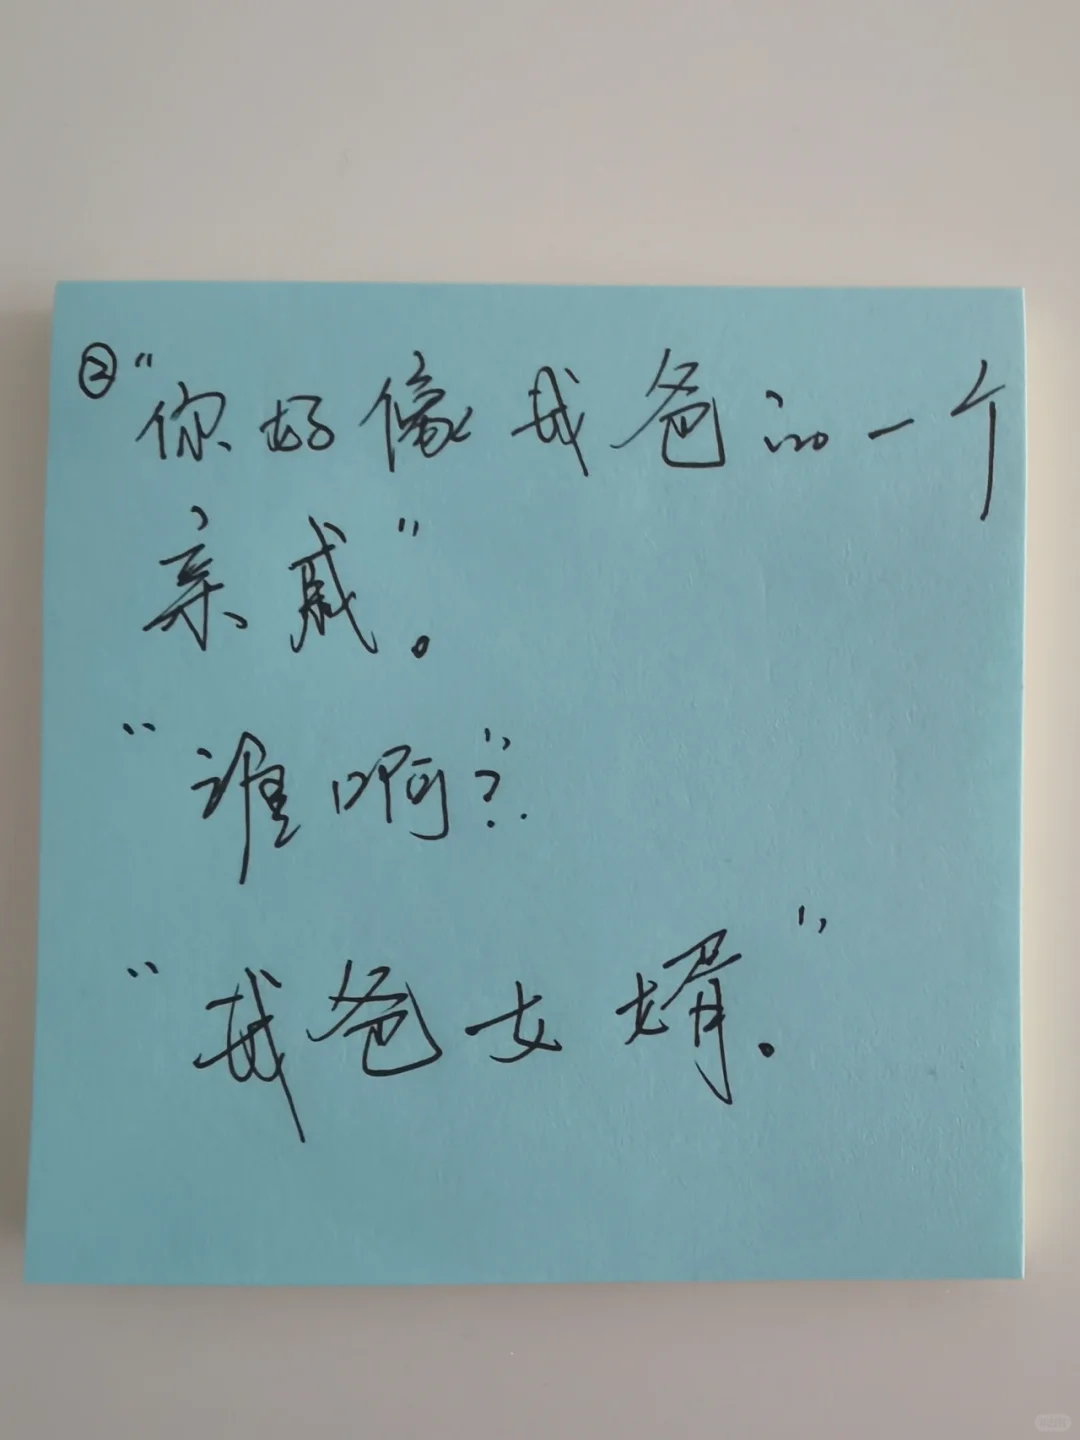 ②“你好像我爸的一个
亲戚”。
“谁啊?”.
“我爸女婿.”